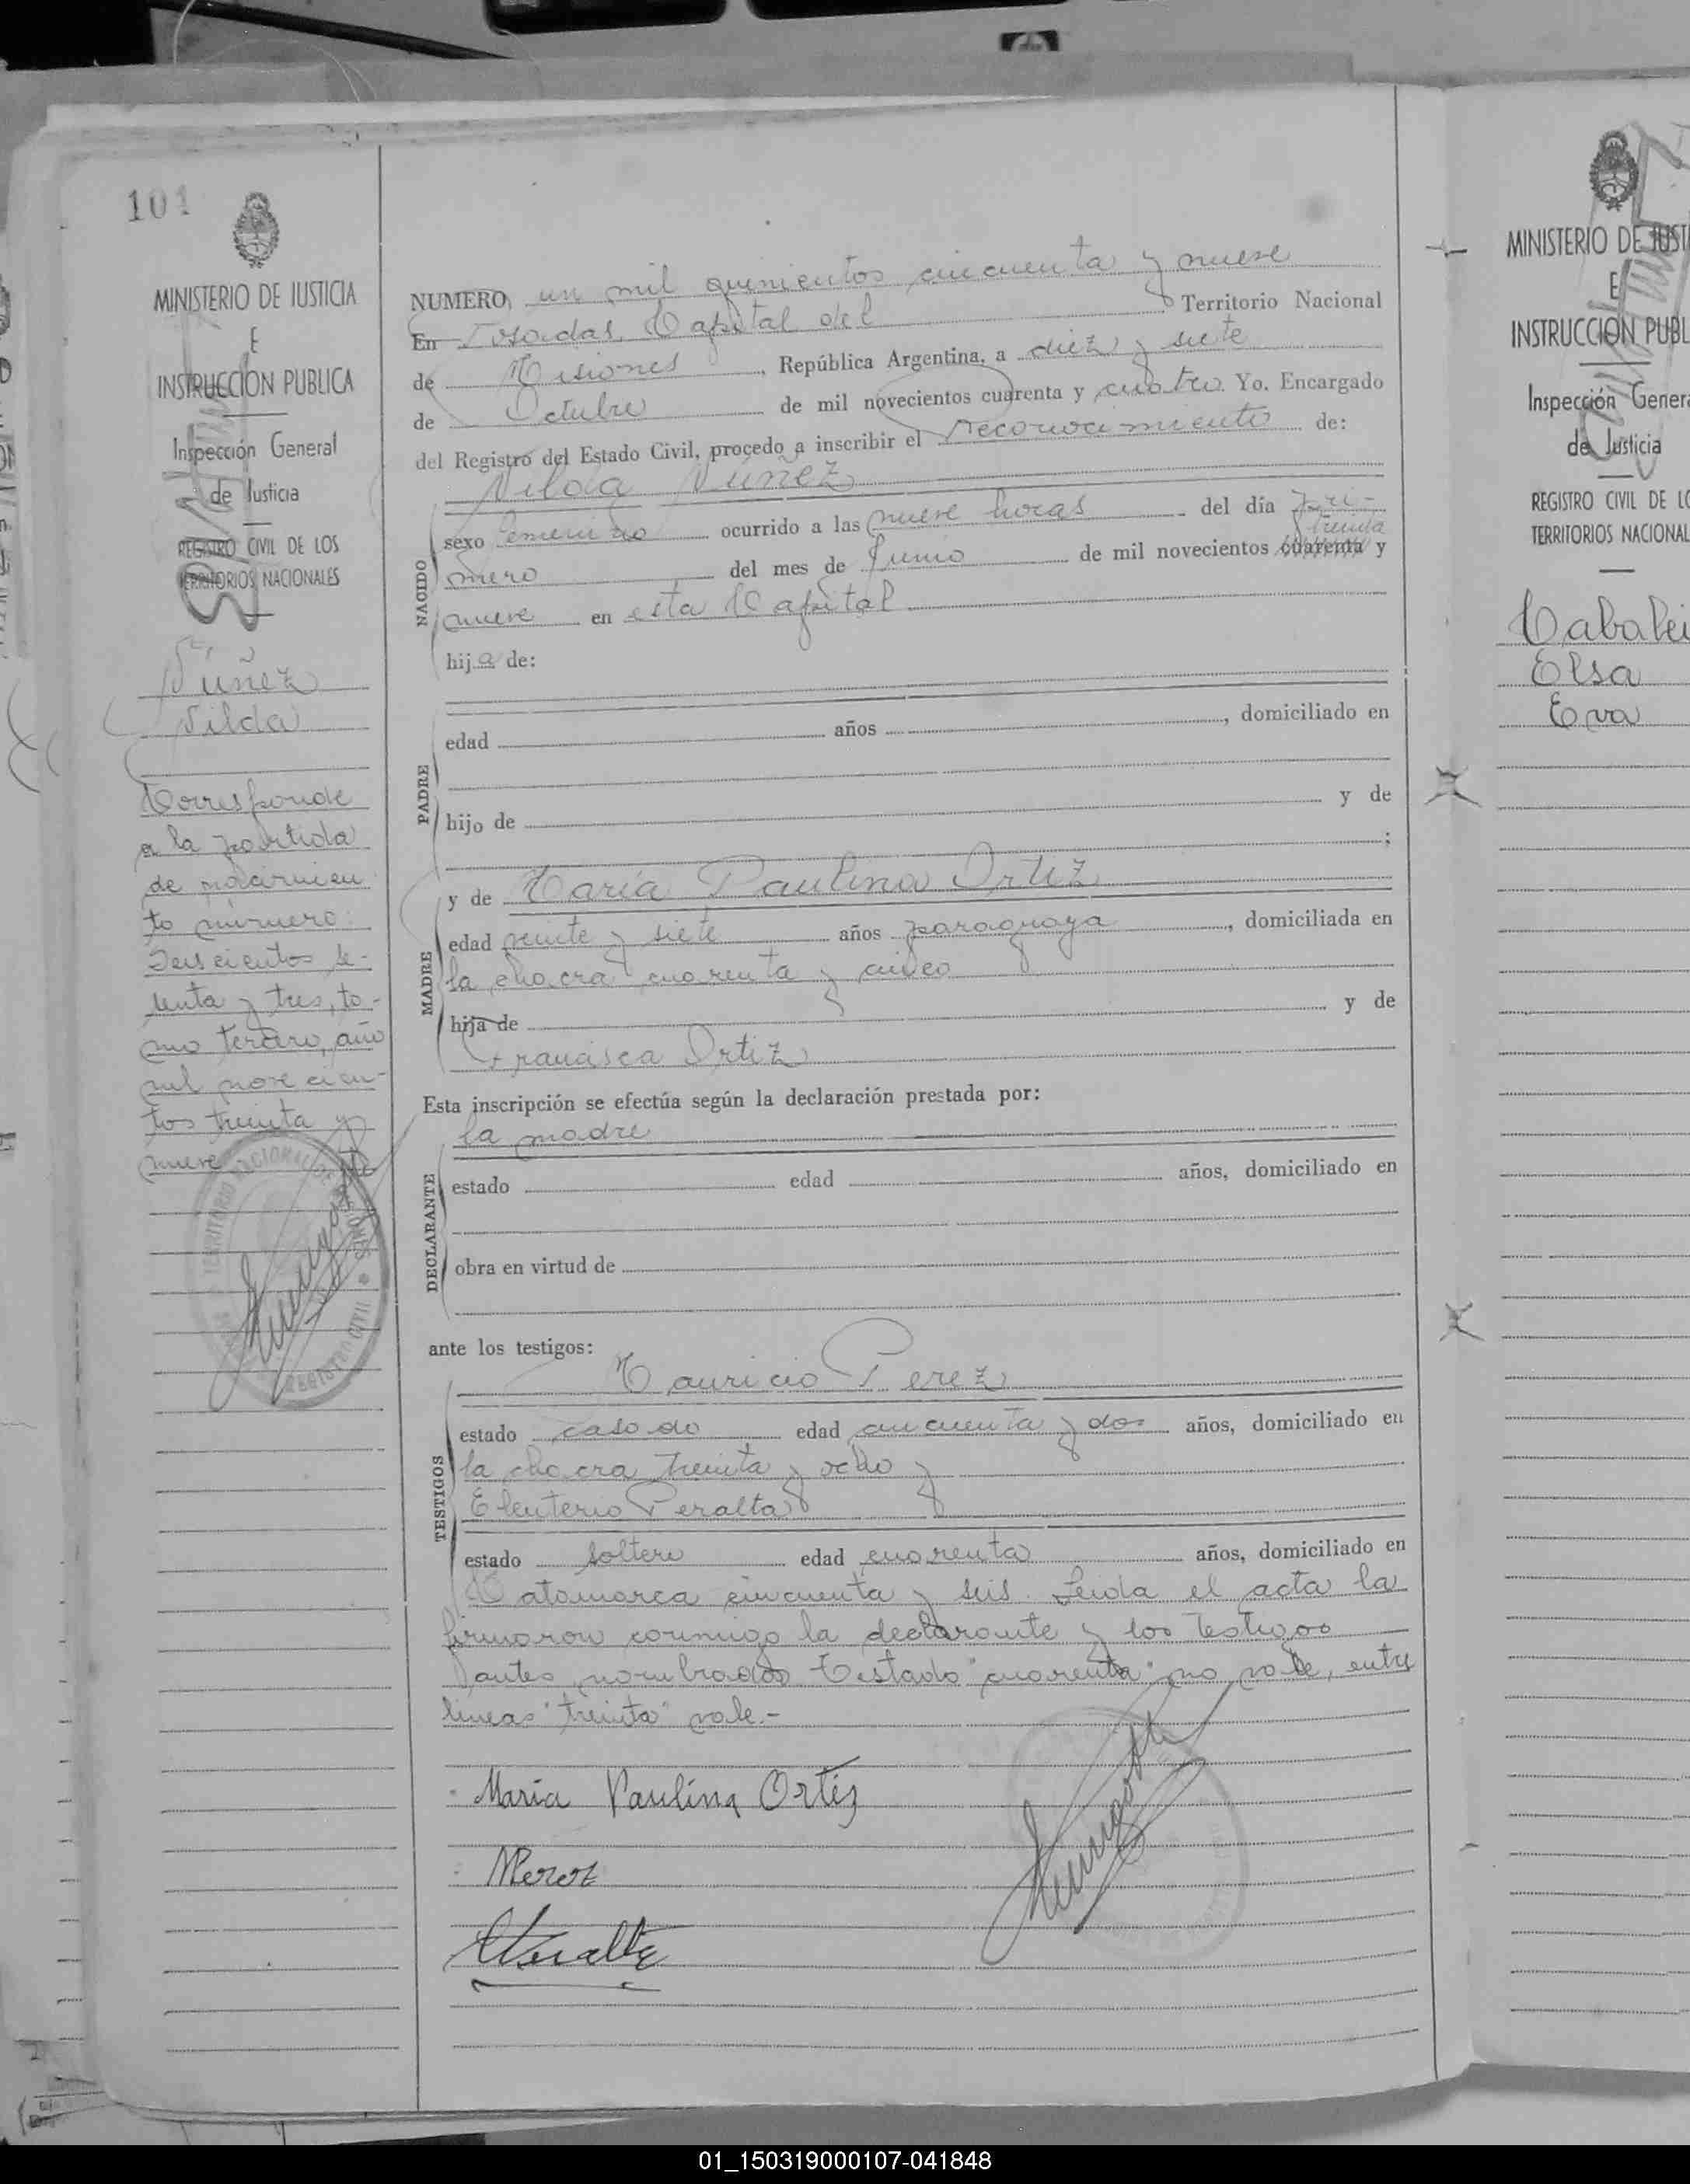 101
MINISTERIO DE JUSTICIA
E
INSTRUCCIÓN PUBLICA
Inspección General
de Justicia
REGISTRO CIVIL DE LOS
TERRITORIOS NACIONALES
Núñez
Nilda
Corresponde
a la partida
de nacimien
to número:
Seiscientos se-
tenta y tres, to-
mo tercero, año
mil novecien-
tos treinta y
nueve
TERRITORIO NACIONAL DE MISIONES
REGISTRO CIVIL
NUMERO, un mil quinientos cincuenta y nueve
En Posadas, Capital del Territorio Nacional
de Misiones, República Argentina, a diez y siete
de Octubre de mil novecientos cuarenta y cuatro. Yo. Encargado
del Registro del Estado Civil, procedo a inscribir el reconocimiento de:
Nilda Núñez
NACIDO
sexo femenino ocurrido a las nueve horas del día pri-
treinta
mero del mes de Junio de mil novecientos cuarenta y
nueve en esta Capital
hija de:
PADRE
edad años , domiciliado en
hijo de y de
;
MADRE
y de María Paulina Ortiz
edad veinte y siete años paraguaya, domiciliada en
la chacra cuarenta y cinco
hija de y de
Francisca Ortiz
Esta inscripción se efectúa según la declaración prestada por:
la madre
DECLARANTE
estado edad años, domiciliado en
obra en virtud de
ante los testigos:
Mauricio Perez
TESTIGOS
estado casado edad cincuenta y dos años, domiciliado en
la chacra treinta y ocho y
Eleuterio Peralta
estado soltero edad cuarenta años, domiciliado en
Catamarca cincuenta y seis. Leida el acta la
firmaron conmigo la declarante y los testigos
antes nombrados Testado "cuarenta" no vale, entre
lineas "treinta" vale.-
María Paulina Ortiz
MPerez
MINISTERIO DE JUSTI
E
INSTRUCCIÓN PUBL
Inspección Genera
de Justicia
REGISTRO CIVIL DE LO
TERRITORIOS NACIONAL
Cabalei
Elsa
Eva
01_150319000107-041848